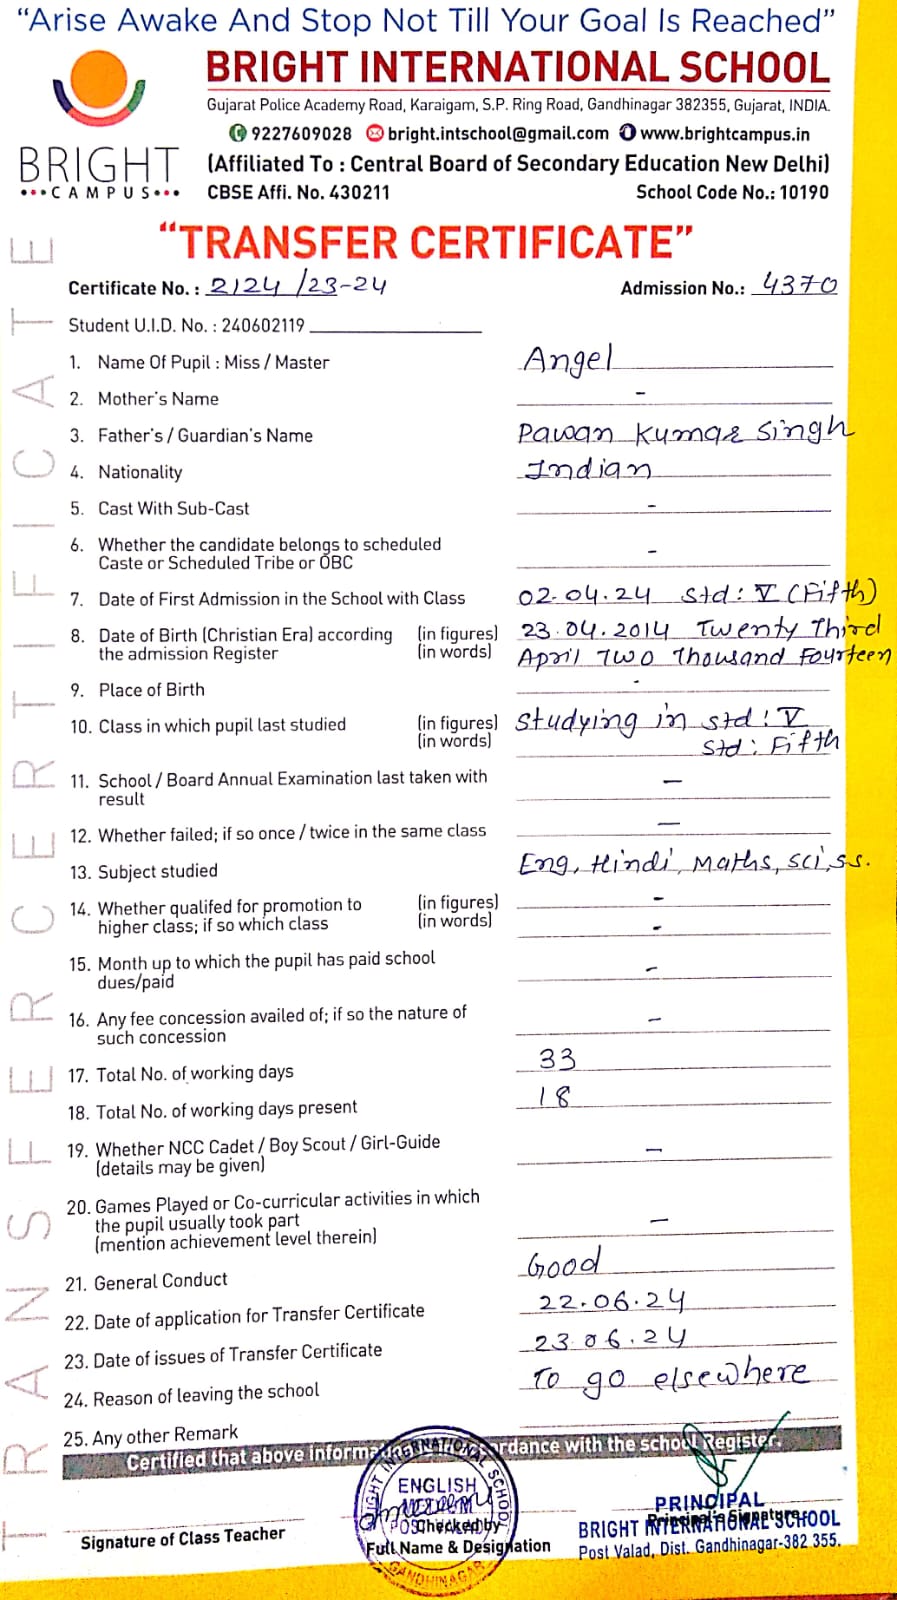 “Arise Awake And Stop Not Till Your Goal Is Reached”
BRIGHT INTERNATIONAL SCHOOL
Gujarat Police Academy Road, Karaigam, S.P. Ring Road, Gandhinagar 382355, Gujarat, INDIA.
9227609028 bright.intschool@gmail.com www.brightcampus.in
BRIGHT
CAMPUS
(Affiliated To : Central Board of Secondary Education New Delhi)
CBSE Affi. No. 430211 School Code No.: 10190
“TRANSFER CERTIFICATE”
TRANSFER CERTIFICATE
Certificate No. : 2124/23-24 Admission No.: 4370
Student U.I.D. No. : 240602119
1. Name Of Pupil : Miss / Master Angel
2. Mother's Name -
3. Father's / Guardian's Name Pawan Kumar Singh
4. Nationality Indian
5. Cast With Sub-Cast -
6. Whether the candidate belongs to scheduled
Caste or Scheduled Tribe or OBC -
7. Date of First Admission in the School with Class 02.04.24 Std : V (Fifth)
8. Date of Birth (Christian Era) according (in figures) 23.04.2014 Twenty Third
the admission Register (in words) April Two Thousand Fourteen
9. Place of Birth -
10. Class in which pupil last studied (in figures) Studying in std : V
(in words) Std : Fifth
11. School / Board Annual Examination last taken with
result -
12. Whether failed; if so once / twice in the same class -
13. Subject studied Eng, Hindi, Maths, Sci, ss.
14. Whether qualifed for promotion to (in figures) -
higher class; if so which class (in words) -
15. Month up to which the pupil has paid school
dues/paid -
16. Any fee concession availed of; if so the nature of
such concession -
17. Total No. of working days 33
18. Total No. of working days present 18
19. Whether NCC Cadet / Boy Scout / Girl-Guide
(details may be given) -
20. Games Played or Co-curricular activities in which
the pupil usually took part
(mention achievement level therein) -
21. General Conduct Good
22. Date of application for Transfer Certificate 22.06.24
23. Date of issues of Transfer Certificate 23.06.24
24. Reason of leaving the school To go elsewhere
25. Any other Remark
Certified that above informa rdance with the school Register.
BRIGHT INTERNATIONAL SCHOOL
ENGLISH
GANDHINAGAR
Signature of Class Teacher
Checked by
Full Name & Designation
PRINCIPAL
Principal's Signature
BRIGHT INTERNATIONAL SCHOOL
Post Valad, Dist. Gandhinagar-382 355.